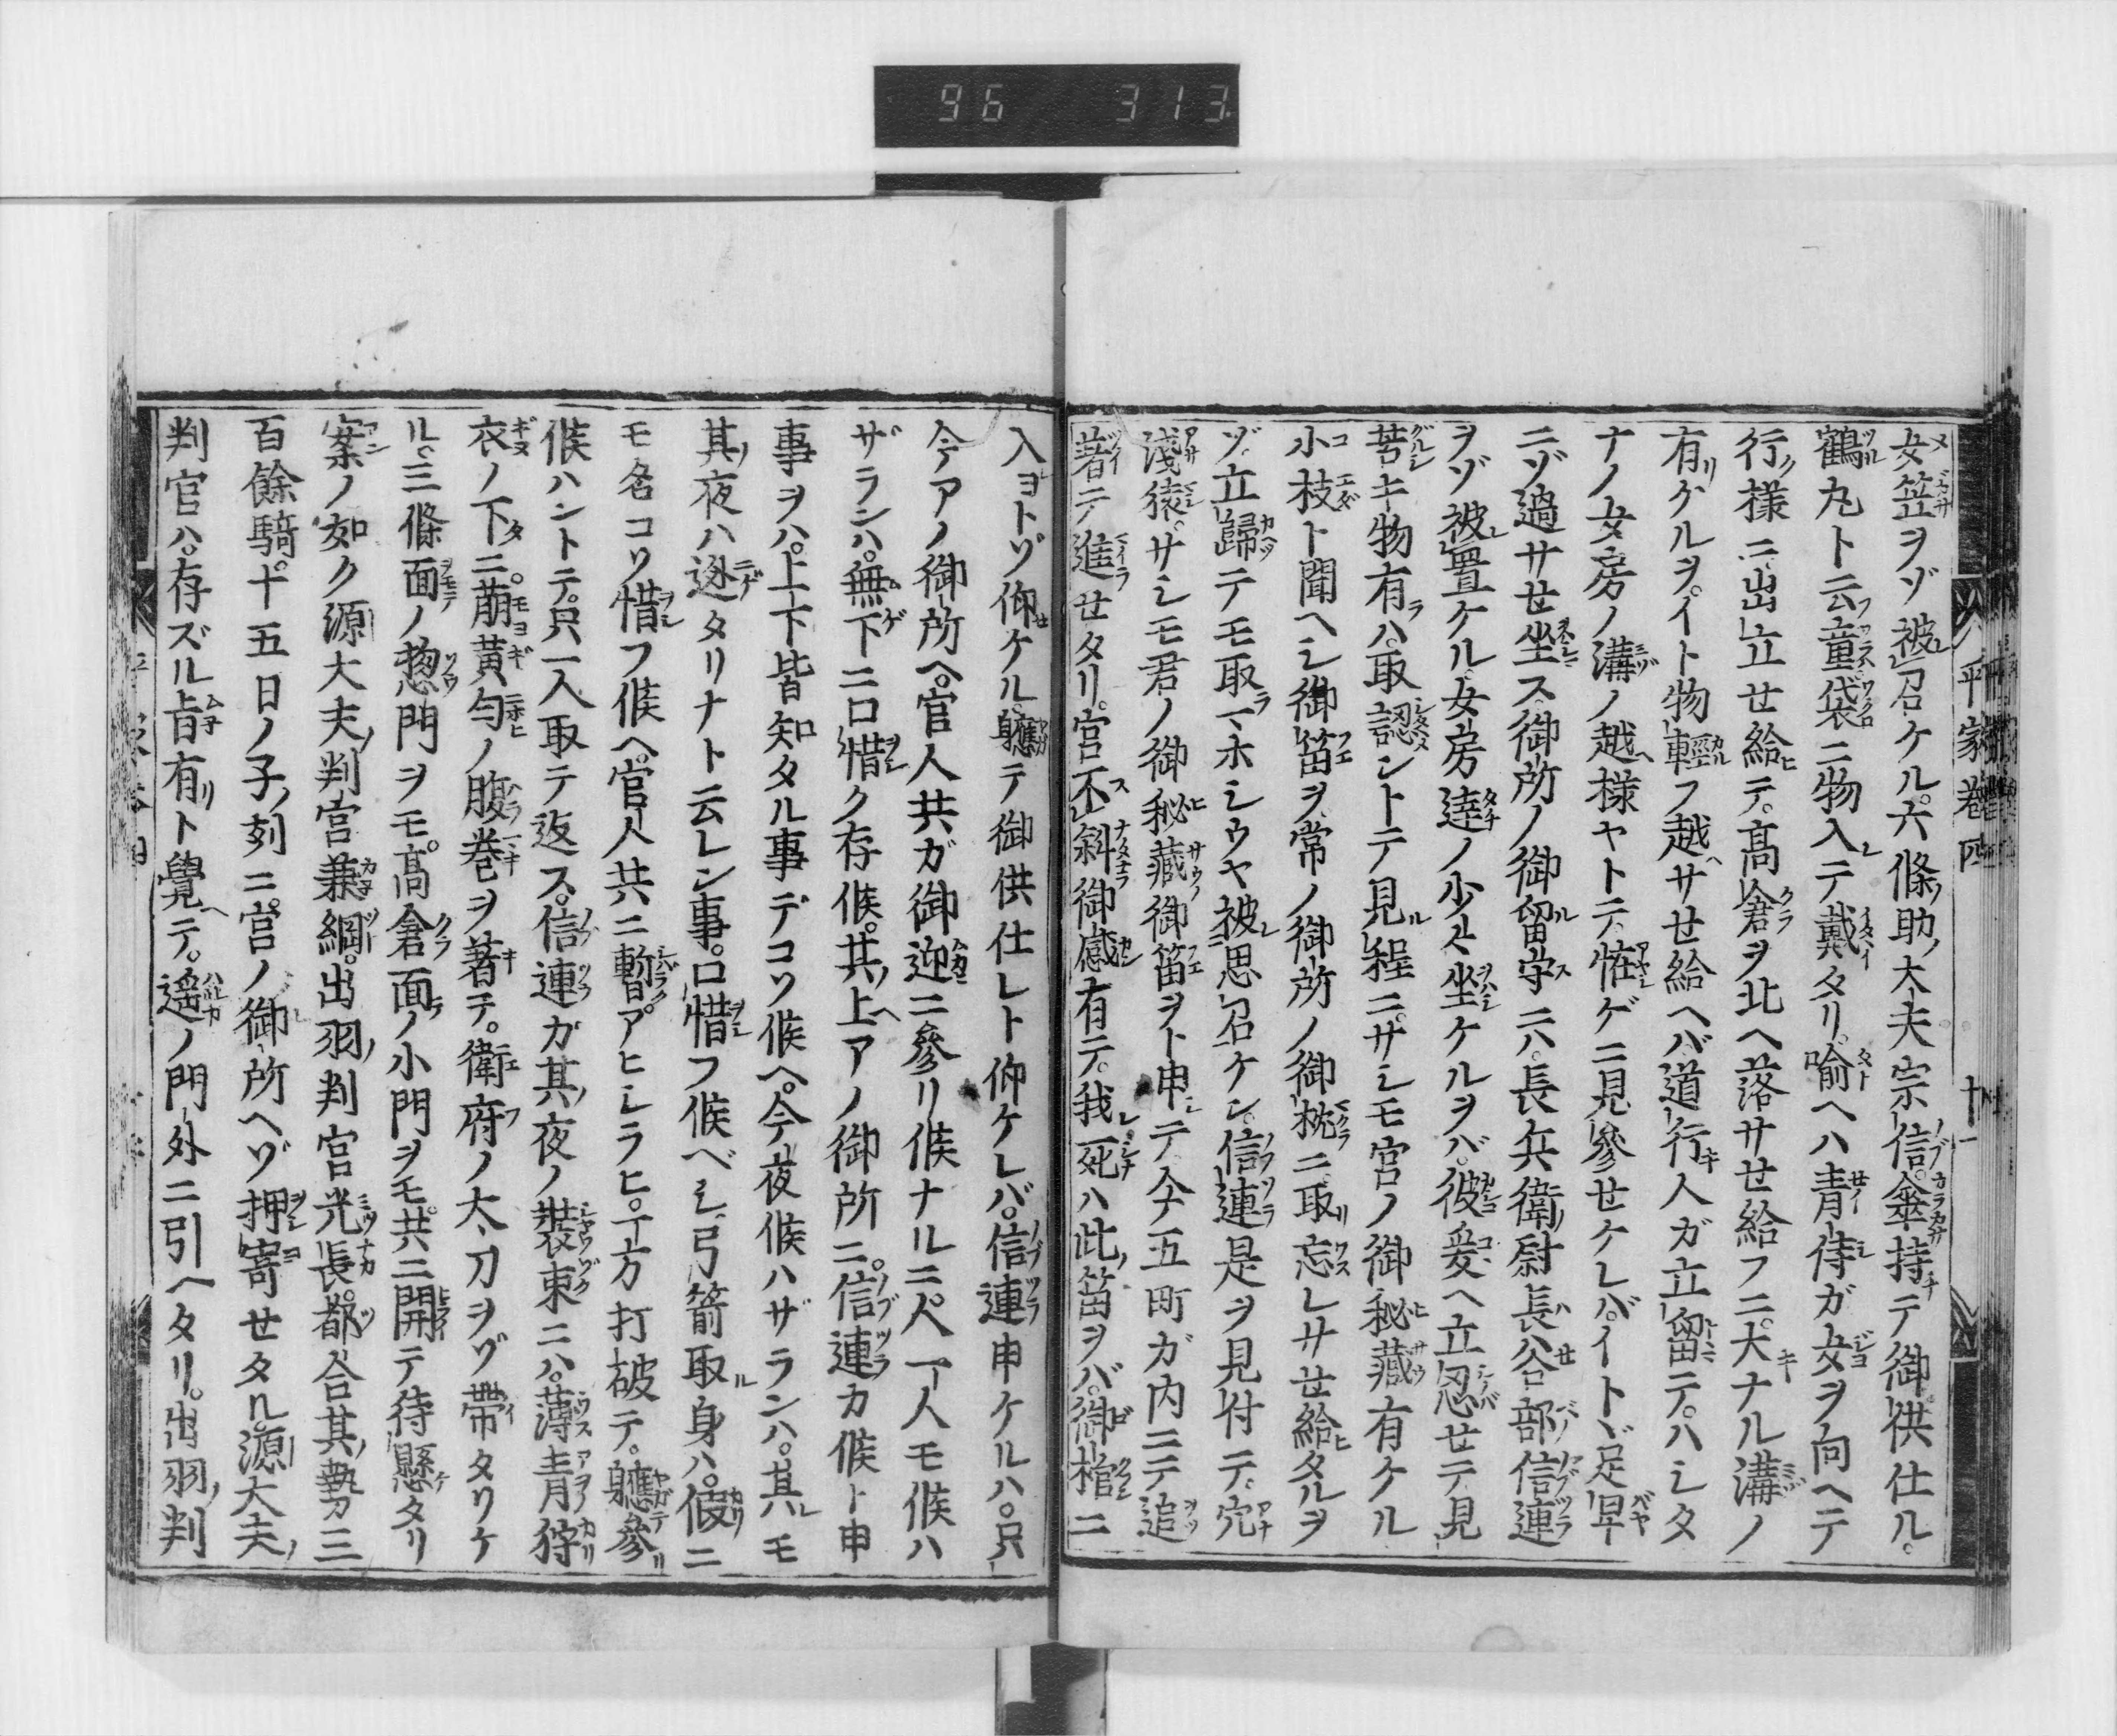 96 313
平家巻四 十一
女笠ヲゾ被召ケル。六條助大夫宗信。傘持テ御供仕ル。
鶴丸ト云童袋ニ物入テ戴タリ。喩ヘハ青侍ガ女ヲ向ヘテ
行様ニ出立セ給テ。高倉ヲ北ヘ落サセ給フニ。大ナル溝ノ
有ケルヲ。イト物輕フ越サセ給ヘバ道行人ガ立留テ。ハシタ
ナノ女房ノ溝ノ越様ヤトテ。恠ゲニ見參セケレバ。イトヾ足早
ニゾ過サセ坐ス。御所ノ御留守ニハ。長兵衛尉長谷部信連
ヲゾ被置ケル。女房達ノ少々坐ケルヲバ。彼爰ヘ立忍セテ見
苦キ物有ハ。取認ントテ見程ニ。サシモ宮ノ御秘藏有ケル
小枝ト聞ヘシ御笛ヲ。常ノ御所ノ御枕ニ取忘レサセ給タルヲ
ゾ。立歸テモ取マホシウヤ被思召ケン。信連是ヲ見付テ。穴
淺猿。サシモ君ノ御秘藏御笛ヲト申テ。今五町ガ内ニテ追
著テ進セタリ。宮不斜御感有テ。我死ハ此笛ヲバ。御棺ニ
入ヨトゾ仰ケル。軈テ御供仕レト仰ケレバ。信連申ケルハ。只
今アノ御所ヘ。官人共ガ御迎ニ參リ候ナルニ。人一人モ候ハ
ザランハ。無下ニ口惜ク存候。其上アノ御所ニ。信連カ候ト申
事ヲハ。上下皆知タル事デコソ候ヘ。今夜候ハザランハ。其モ
其夜ハ逃タリナト云レン事。口惜フ候ベシ。弓箭取身ハ。假ニ
モ名コソ惜フ候ヘ。官人共ニ暫アヒシラヒ。一方打破テ。軈參
候ハントテ。只一人取テ返ス。信連ガ其夜ノ裝束ニハ。薄青狩
衣ノ下ニ。萠黃匂ノ腹巻ヲ著テ。衛府ノ大刀ヲゾ帶タリケ
ル。三條面ノ惣門ヲモ。高倉面ノ小門ヲモ。共ニ開テ待懸タリ
案ノ如ク源大夫判官兼綱。出羽判官光長。都合其勢三
百餘騎。十五日ノ子刻ニ。宮ノ御所ヘゾ押寄セタル。源大夫
判官ハ。存ズル旨有ト覺テ。遥ノ門外ニ引ヘタリ。出羽判